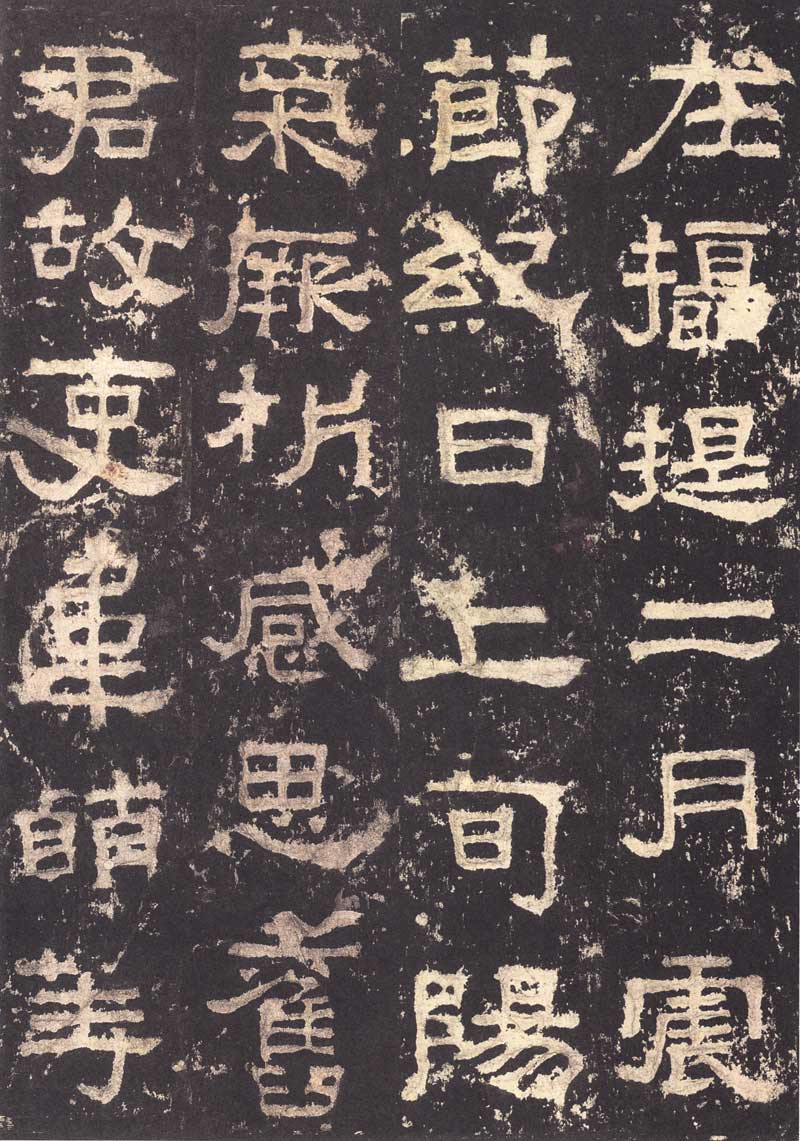 在攝提二月震
節紀日上旬陽
氣厥析感思舊
君故吏韋萌等